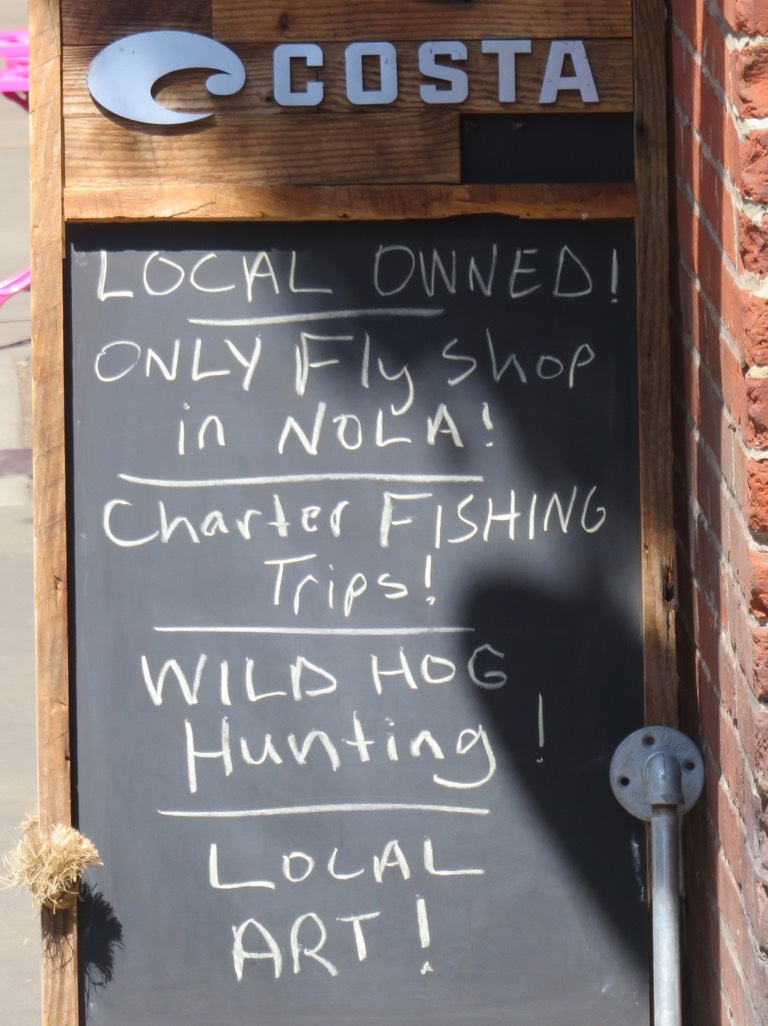 COSTA
LOCAL OWNED!
ONLY Fly Shop
in NOLA!
Charter FISHING
Trips!
WILD HOG
Hunting!
LOCAL
ART!